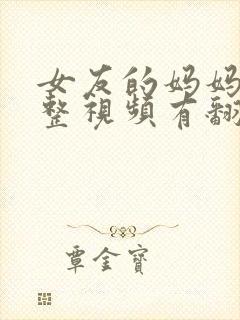 女友的妈妈
整視頻有翻
覃金寶